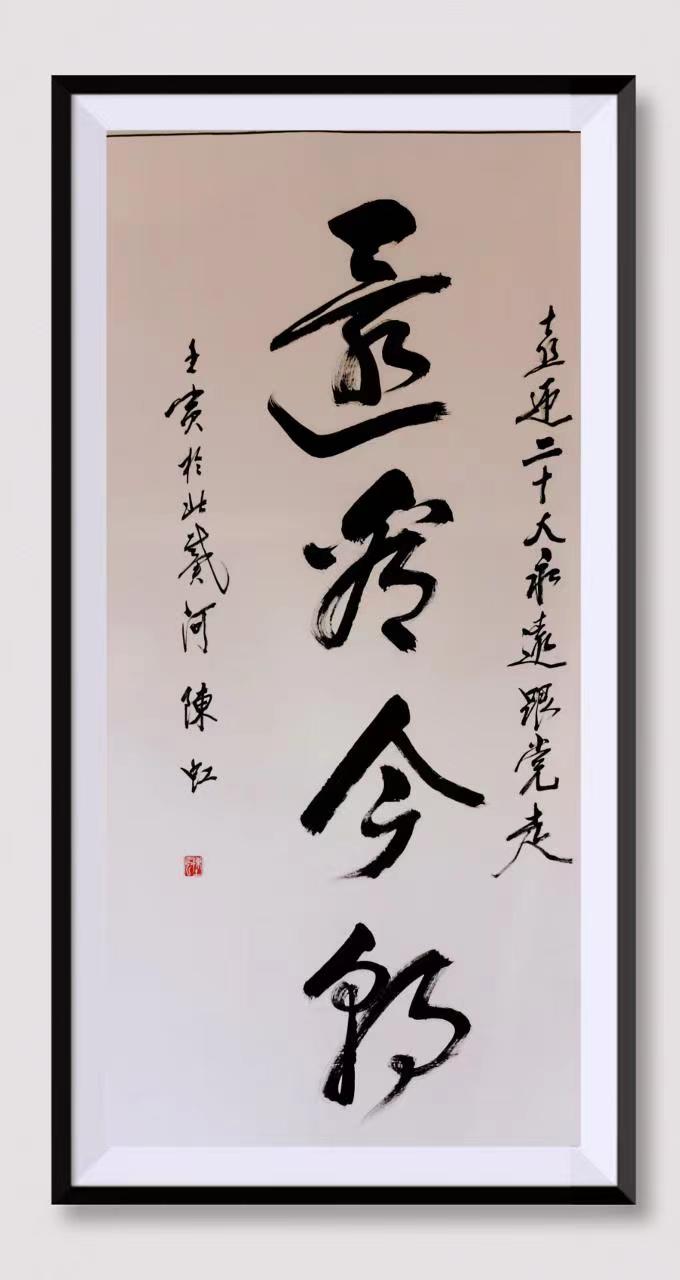 喜迎二十大永遠跟党走
還看今朝
壬寅於北戴河 陳虹